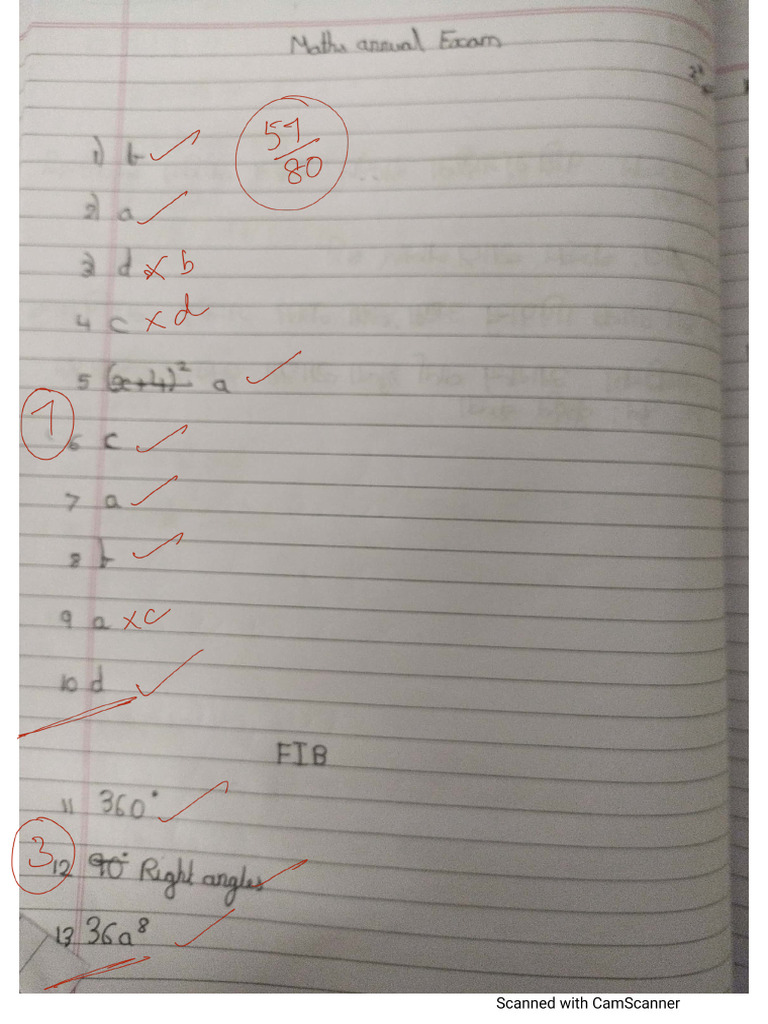 Maths annual Exam
1) b
51
80
2) a
3) d × b
4 c × d
5 (x+4)² a
7
6 c
7 a
8 b
9 a × c
10 d
FIB
11 360°
3
12 90° Right angles
13 36a⁸
Scanned with CamScanner